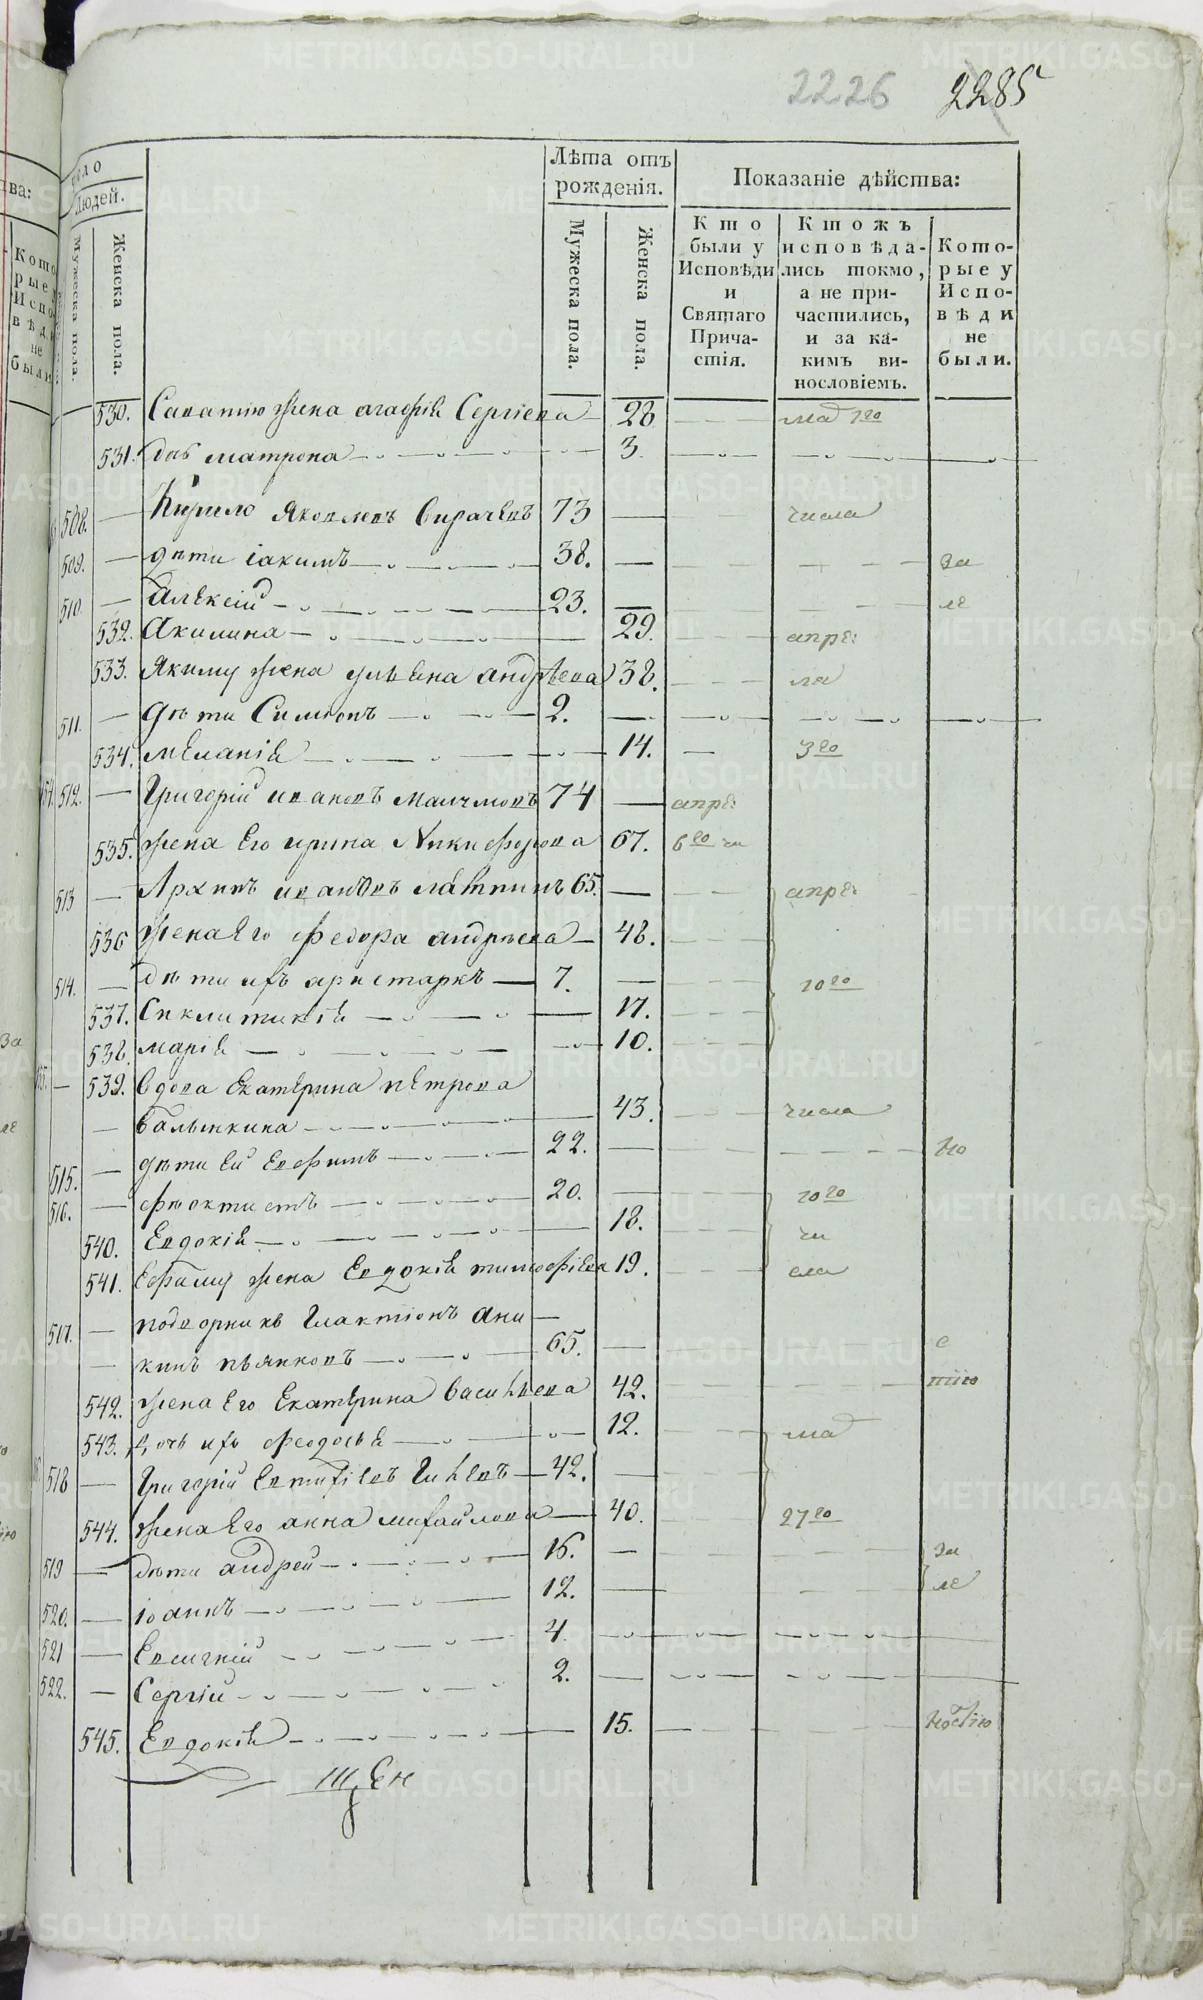 2226 2285
Лѣта отъ рожденія.
Показаніе дѣйства:
Людей.
Мужеска пола.
Женска пола.
Мужеска пола.
Женска пола.
Кто были у Исповѣди и Святаго Причастія.
Ктожъ исповѣдались токмо, а не причастились, и за какимъ винословіемъ.
Которые у Исповѣди не были.
530. жена агафія Сергіева 28 ма 7го
531. матрона 3.
508. Кирило Яковлевъ 73 числа
509. дѣти іакимъ 38. за
510. Алексій 23. ле
532. Акилина 29. апре:
533. Якиму жена андрѣева 38. ля
511. дѣти Симеонъ 2.
534. меланія 14. 3го
512. Григорій ивановъ 74 апре:
535. жена Его ирина Никифорова 67. 6го чи
513 Архипъ ивановъ 65. апре:
536 жена Его федора андреева 48.
514. дѣти ихъ аристархъ 7. 10го
537. Сиклитикія 17.
538. марія 10.
539. вдова Екатерина петрова
Балынкина 43. числа
515. дѣти Ей Евфимъ 22. но
516. феоктистъ 20. 10го
540. Евдокія 18. чи
541. Ефиму жена Евдокія тимофіева 19. сла
517. Гпактіонъ Ани
кинъ пьянковъ 65. с
542. жена Его Екатерина Васильева 42. тію
543. дочь ихъ феодосья 12. ма
518 Григорій 42.
544. жена Его анна михайлова 40. 27го
519 дѣти андрей 16. за
520. іоаннъ 12. ле
521 Евгеній 4.
522. Сергій 2.
545. Евдокія 15. ностію
щен